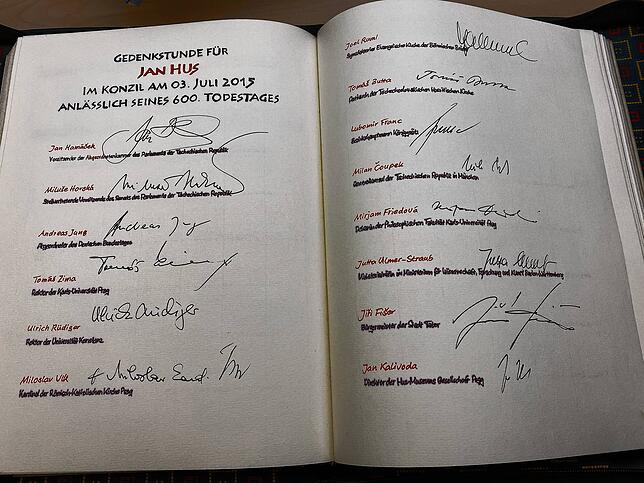 GEDENKSTUNDE FÜR
JAN HUS
IM KONZIL AM 03. JULI 2015
ANLÄSSLICH SEINES 600. TODESTAGES
Jan Hamáček
Vorsitzender der Abgeordnetenkammer des Parlaments der Tschechischen Republik
Miluše Horská
Stellvertretende Vorsitzende des Senats des Parlaments der Tschechischen Republik
Andreas Jung
Andreas Jung
Abgeordneter des Deutschen Bundestages
Tomáš Zima
Rektor der Karls-Universität Prag
Ulrich Rüdiger
Ulrich Rüdiger
Rektor der Universität Konstanz
Miloslav Vlk
+ Miloslav Card. Vlk
Kardinal der Römisch-Katholischen Kirche Prag
Joel Ruml
Synodalsenior Evangelische Kirche der Böhmischen Brüder
Tomáš Butta
Tomáš Butta
Patriarch der Tschechoslowakischen Hussitischen Kirche
Lubomír Franc
Bezirkshauptmann Königgrätz
Milan Čoupek
Generalkonsul der Tschechischen Republik in München
Mirjam Friedová
Dekanin der Philosophischen Fakultät Karls-Universität Prag
Jutta Ulmer-Straub
Ministerialrätin im Ministerium für Wissenschaft, Forschung und Kunst Baden-Württemberg
Jiří Fišer
Bürgermeister der Stadt Tábor
Jan Kalivoda
Direktor der Hus-Museums Gesellschaft Prag